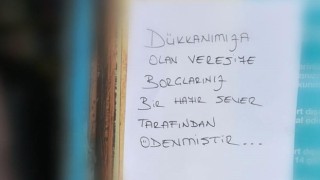 DÜKKANIMIZA
OLAN VERESİYE
BORÇLARINIZ
BİR HAYIR SEVER
TARAFINDAN
ÖDENMİSTİR...